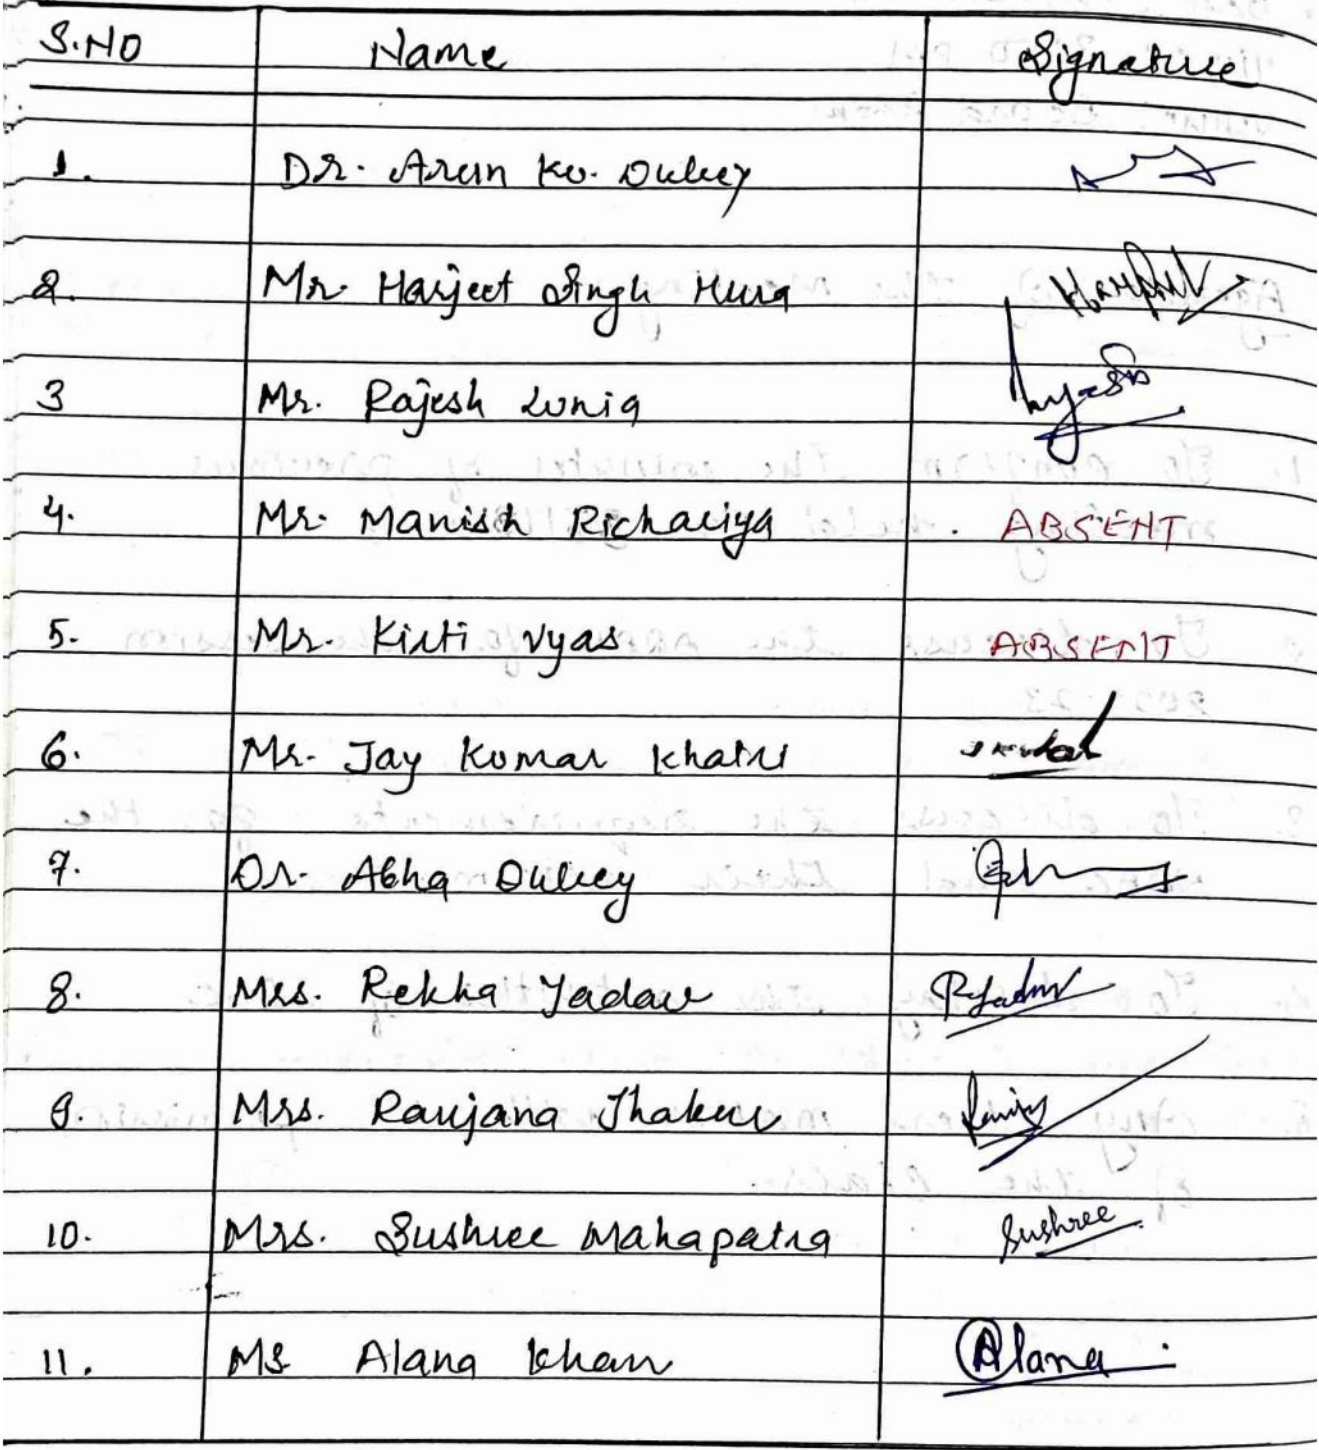 S.NO Name Signature
1. Dr. Arun Ku. Dubey
2. Mr. Harjeet Singh Hura
3 Mr. Rajesh Lunia
4. Mr. Manish Richariya ABSENT
5. Mr. Kirti Vyas ABSENT
6. Mr. Jay Kumar Khatri
7. Dr. Abha Dubey
8. Mrs. Rekha Yadav RYadav
9. Mrs. Ranjana Thakur
10. Mrs. Sushree Mahapatra Sushree
11. Ms Alana Khan Alana